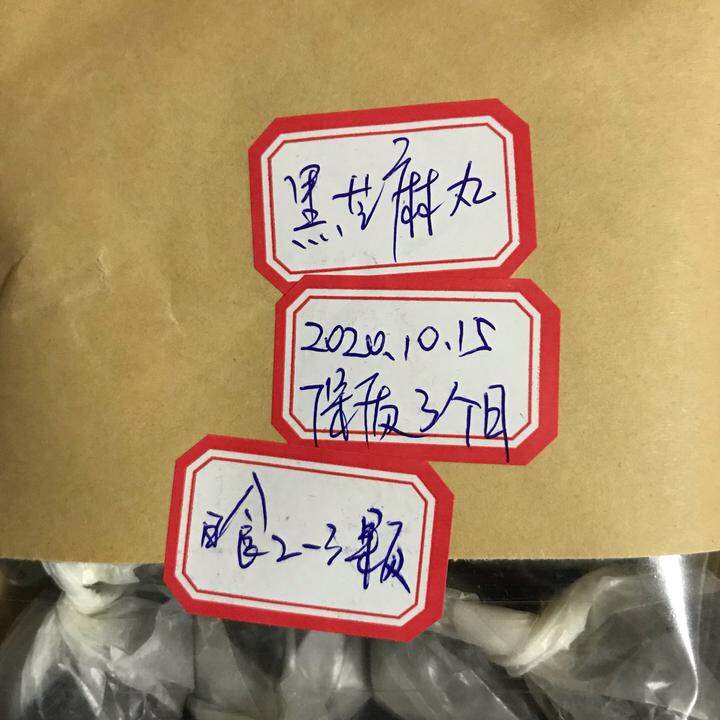 黑芝麻丸
2020.10.15
保质3个月
日食2-3颗